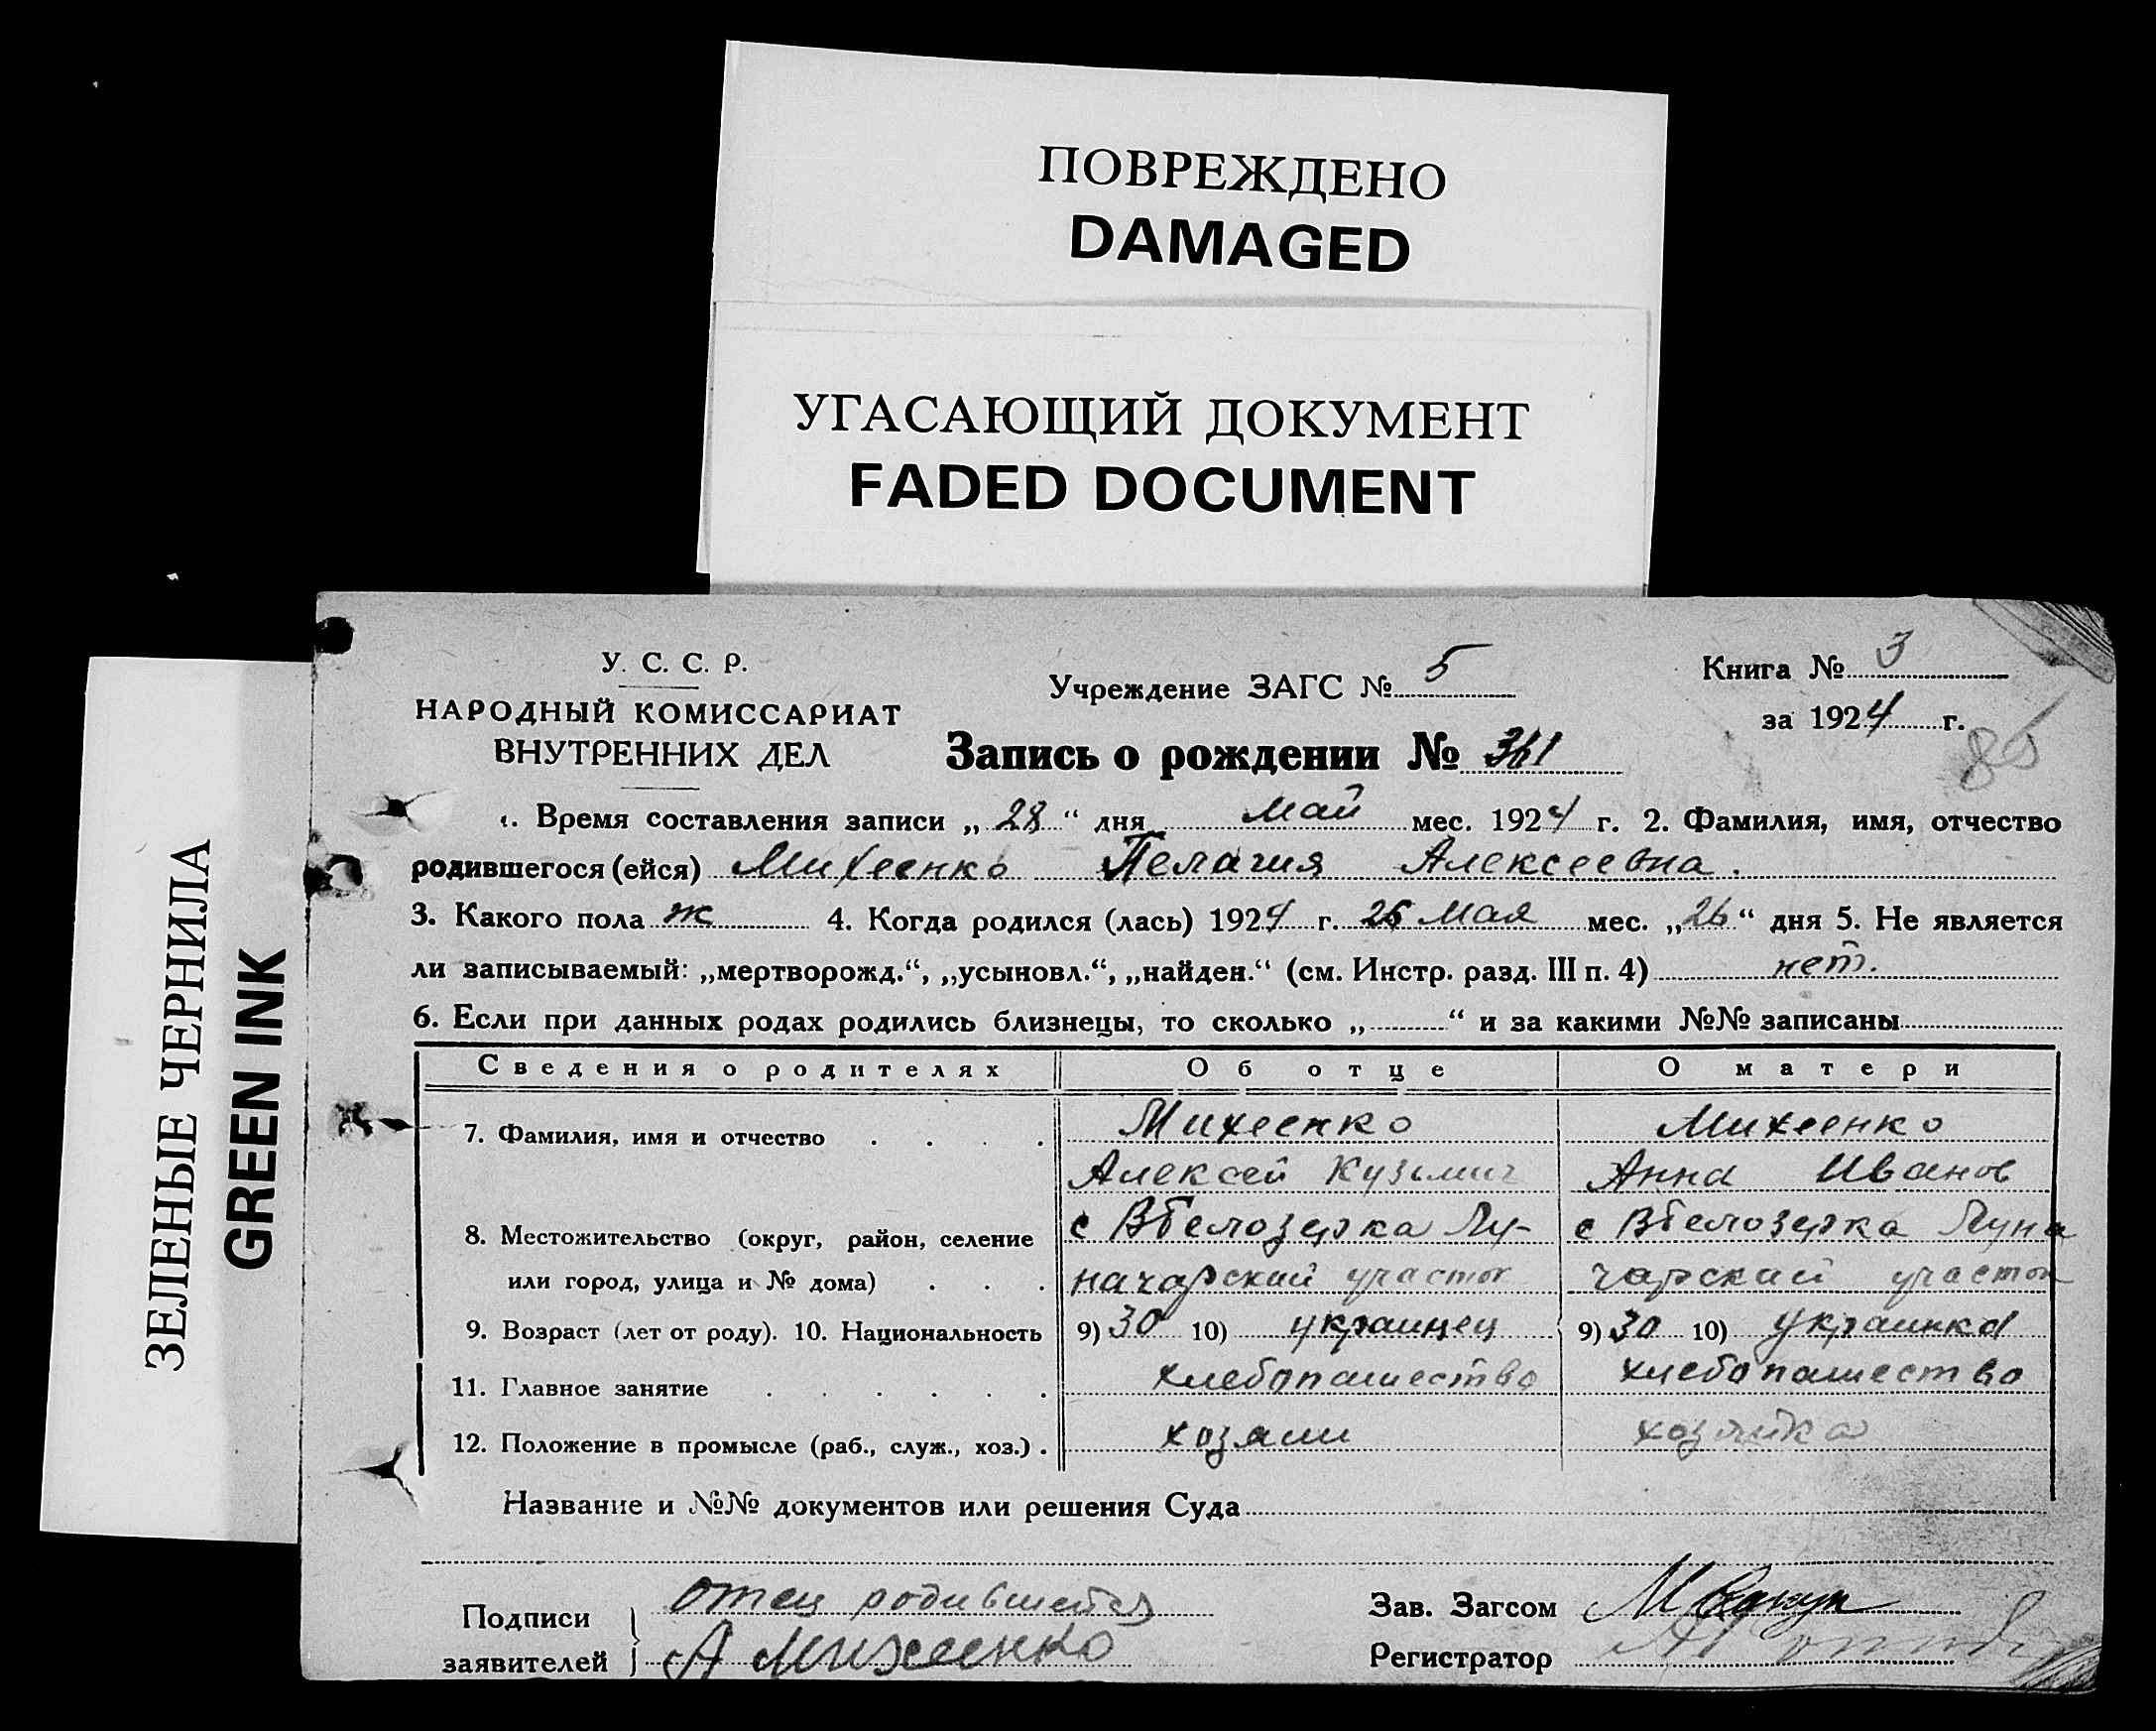 ПОВРЕЖДЕНО
DAMAGED
УГАСАЮЩИЙ ДОКУМЕНТ
FADED DOCUMENT
ЗЕЛЕНЫЕ ЧЕРНИЛА
GREEN INK
У. С. С. Р.
НАРОДНЫЙ КОМИССАРИАТ
ВНУТРЕННИХ ДЕЛ
Учреждение ЗАГС № 5
Книга № 3
за 1924 г.
85
Запись о рождении № 361
1. Время составления записи „ 28 “ дня май мес. 1924 г. 2. Фамилия, имя, отчество
родившегося (ейся) Михеенко Пелагия Алексеевна.
3. Какого пола ж 4. Когда родился (лась) 1924 г. 26 Мая мес. „26“ дня 5. Не является
ли записываемый: „мертворожд.“, „усыновл.“, „найден.“ (см. Инстр. разд. III п. 4) нет.
6. Если при данных родах родились близнецы, то сколько „ “ и за какими №№ записаны
Сведения о родителях Об отце О матери
7. Фамилия, имя и отчество Михеенко Михеенко
Алексей Кузьмич Анна Иванов
8. Местожительство (округ, район, селение с ВБелозерка Лу- с ВБелозерка Луна
или город, улица и № дома) начарский участок чарский участок
9. Возраст (лет от роду). 10. Национальность 9) 30 10) украинец 9) 30 10) украинка
11. Главное занятие хлебопашество хлебопашество
12. Положение в промысле (раб., служ., хоз.) хозяин хозяйка
Название и №№ документов или решения Суда
Подписи заявителей } отец родившейся
А Михеенко
Зав. Загсом
Регистратор